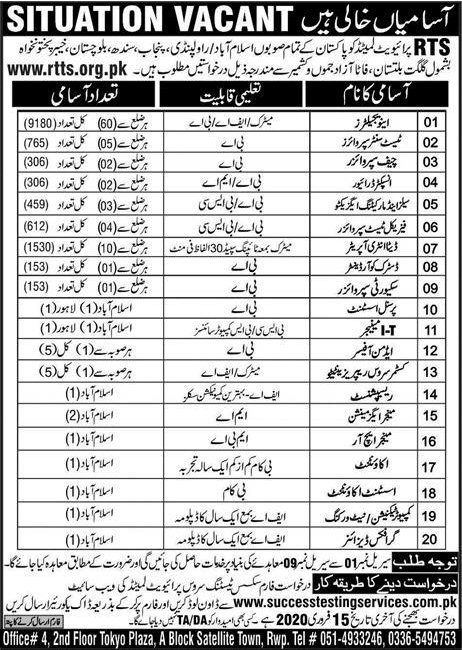 SITUATION VACANT آسامیاں خالی ہیں
RTS پرائیویٹ لمیٹڈ کو پاکستان کے تمام صوبوں اسلام آباد/راولپنڈی، پنجاب، سندھ، بلوچستان، خیبر پختونخواہ
بشمول گلگت بلتستان، فاٹا آزاد جموں و کشمیر سے مندرجہ ذیل درخواستیں مطلوب ہیں۔ www.rtts.org.pk
آسامی کا نام تعلیمی قابلیت تعداد آسامی
01 اینویجیلیٹرز میٹرک/ایف اے/بی اے ہر ضلع سے (60) کل تعداد (9180)
02 ٹیسٹ سنٹر سپروائزر بی اے ہر ضلع سے (05) کل تعداد (765)
03 چیف سپروائزر بی اے ہر ضلع سے (02) کل تعداد (306)
04 انسپکٹر ڈرائیور بی اے/ایم اے ہر ضلع سے (02) کل تعداد (306)
05 سیلز اینڈ مارکیٹنگ ایگزیکٹو بی اے/بی ایس سی ہر ضلع سے (03) کل تعداد (459)
06 فزیکل ٹیسٹ سپروائزر بی اے/بی ایس سی ہر ضلع سے (04) کل تعداد (612)
07 ڈیٹا انٹری آپریٹر میٹرک بمعہ ٹائپنگ سپیڈ 30 الفاظ فی منٹ ہر ضلع سے (10) کل تعداد (1530)
08 ڈسٹرکٹ کوآرڈینیٹر بی اے ہر ضلع سے (01) کل تعداد (153)
09 سکیورٹی سپروائزر بی اے ہر ضلع سے (01) کل تعداد (153)
10 پرسنل اسسٹنٹ بی اے اسلام آباد (1) لاہور (1)
11 I-T منیجر بی ایس سی/بی ایس کمپیوٹر سائنسز اسلام آباد (1) لاہور (1)
12 ایڈمن آفیسر بی اے ہر صوبہ سے (1) کل (5)
13 کسٹمر سروس ریپریزینٹیٹو میٹرک/ایف اے ہر صوبہ سے (1) کل (5)
14 ریسپشنسٹ ایف اے-بہترین کمیونیکیشن سکلز اسلام آباد (1)
15 منیجر ایگزامینیشن ایم اے اسلام آباد (2)
16 منیجر ایچ آر ایم بی اے اسلام آباد (1)
17 اکاؤنٹنٹ بی کام کم از کم ایک سالہ تجربہ اسلام آباد (1)
18 اسسٹنٹ اکاؤنٹنٹ بی کام اسلام آباد (1)
19 کمپیوٹر ٹیکنیشن/نیٹ ورکنگ ایف اے بمع ایک سال کا ڈپلومہ اسلام آباد (1)
20 گرافکس ڈیزائنر ایف اے بمع ایک سال کا ڈپلومہ اسلام آباد (1)
توجہ طلب سیریل نمبر 01 سے سیریل نمبر 09 معاہدے کی بنیاد پر خدمات حاصل کی جائیں گی اور ضرورت کے مطابق معاہدہ کیا جائے گا۔
درخواست دینے کا طریقہ کار درخواست فارم سکسس ٹیسٹنگ سروس پرائیویٹ لمیٹڈ کی ویب سائیٹ
www.successtestingservices.com.pk سے ڈاؤن لوڈ کریں اور فارم پر کر کے بذریعہ ڈاک یا کورئیر ارسال کریں
درخواست بھیجنے کی آخری تاریخ 15 فروری 2020 ہے کسی بھی امیدوار کو TA/DA نہیں دیا جائے گا۔ فارم ارسال کرنے کا پتہ
Office# 4, 2nd Floor Tokyo Plaza, A Block Satellite Town, Rwp. Tel # 051-4933246, 0336-5494753